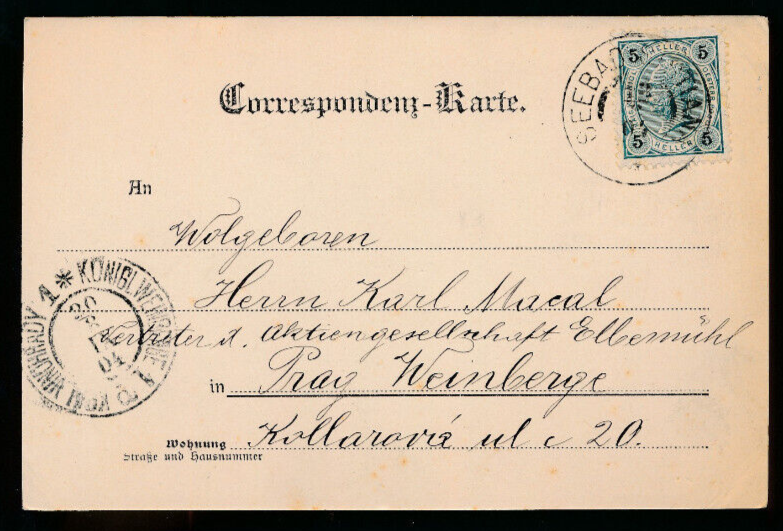 Correspondenz-Karte.
SEEBAD
5 HELLER 5
5 HELLER 5
An
Wolgeboren
Herrn Karl Macal
Vertreter d. Aktiengesellschaft Elbemühl
in Prag Weinberge
Wohnung Kollarova ul c 20.
Straße und Hausnummer
KÖNIGL. WEINBERGE 1
KRÁL. VINOHRADY 1